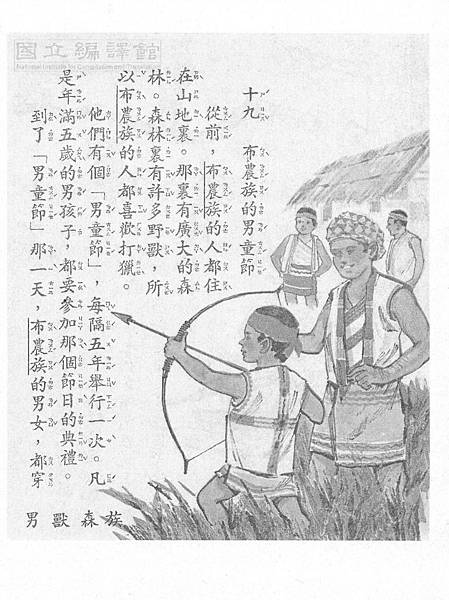 國立編譯館
National Institute for Compilation and Translation
十九　布農族的男童節
從前，布農族的人都住
在山地裏。那裏有廣大的森
林。森林裏有許多野獸，所
以布農族的人都喜歡打獵。
他們有個「男童節」，每隔五年舉行一次。凡
是年滿五歲的男孩子，都要參加那個節日的典禮。
到了「男童節」那一天，布農族的男女，都穿
族 森 獸 男